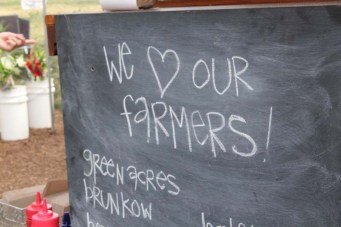 we ♡ our
farmers!
green acres
brunkow